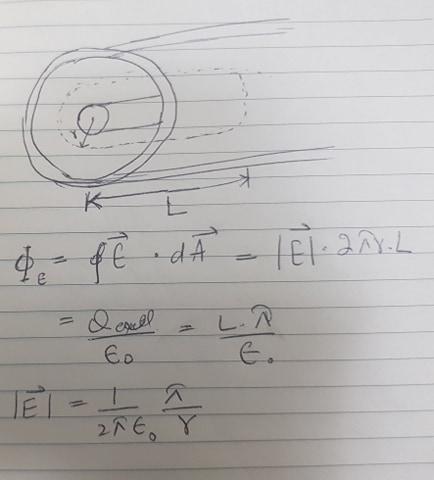 r
L
Φ_E = ∮ E⃗ · dA⃗ = |E⃗| · 2πr · L
= Q_encl / ε₀ = L · λ / ε₀
|E⃗| = 1 / 2πε₀ λ / r